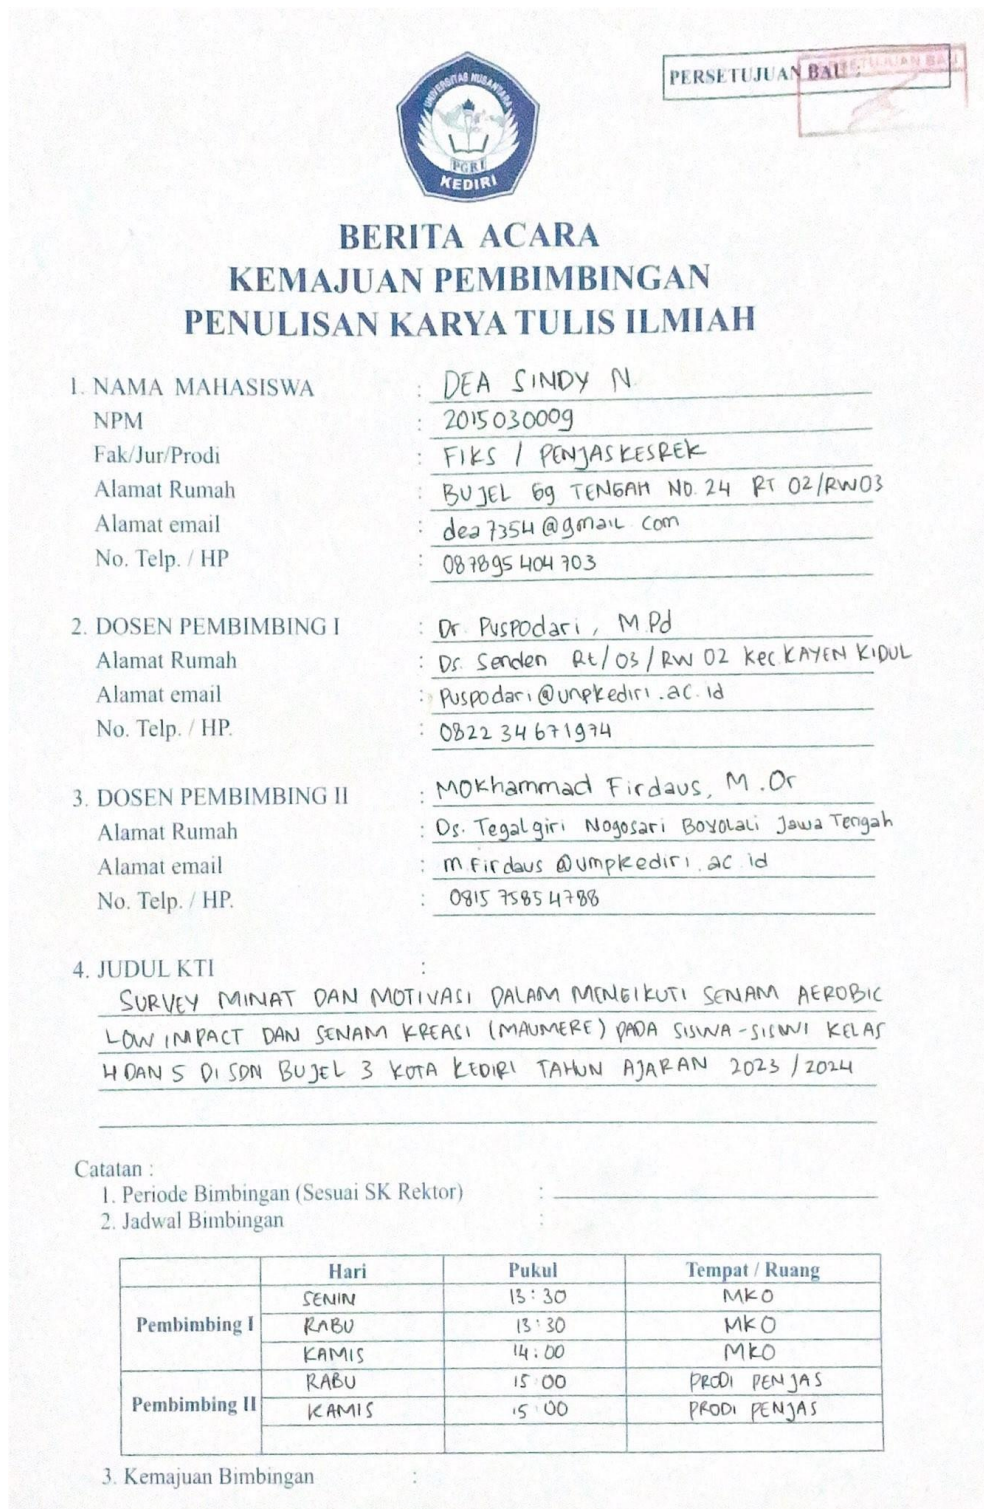 UNIVERSITAS NUSANTARA
PGRI
KEDIRI
PERSETUJUAN BAU :
PERSETUJUAN BAU
BERITA ACARA
KEMAJUAN PEMBIMBINGAN
PENULISAN KARYA TULIS ILMIAH
1. NAMA MAHASISWA : DEA SINDY N.
NPM : 2015030009
Fak/Jur/Prodi : FIKS / PENJASKESREK
Alamat Rumah : BUJEL Gg TENGAH NO. 24 RT 02/RW03
Alamat email : dea7354@gmail.com
No. Telp. / HP : 087895404703
2. DOSEN PEMBIMBING I : Dr. Puspodari, M.Pd
Alamat Rumah : Ds. Senden Rt/03/RW 02 Kec.KAYEN KIDUL
Alamat email : Puspodari@unpkediri.ac.id
No. Telp. / HP. : 0822 34671974
3. DOSEN PEMBIMBING II : Mokhammad Firdaus, M.Or
Alamat Rumah : Ds. Tegalgiri Nogosari Boyolali Jawa Tengah
Alamat email : m.firdaus@umpkediri.ac.id
No. Telp. / HP. : 0815 7585 4788
4. JUDUL KTI :
SURVEY MINAT DAN MOTIVASI DALAM MENGIKUTI SENAM AEROBIC
LOW IMPACT DAN SENAM KREASI (MAUMERE) PADA SISWA-SISWI KELAS
4 DAN 5 DI SDN BUJEL 3 KOTA KEDIRI TAHUN AJARAN 2023/2024
Catatan :
1. Periode Bimbingan (Sesuai SK Rektor) :
2. Jadwal Bimbingan :
Hari Pukul Tempat / Ruang
Pembimbing I
SENIN 13:30 MKO
RABU 13:30 MKO
KAMIS 14:00 MKO
Pembimbing II
RABU 15:00 PRODI PENJAS
KAMIS 15:00 PRODI PENJAS
3. Kemajuan Bimbingan :